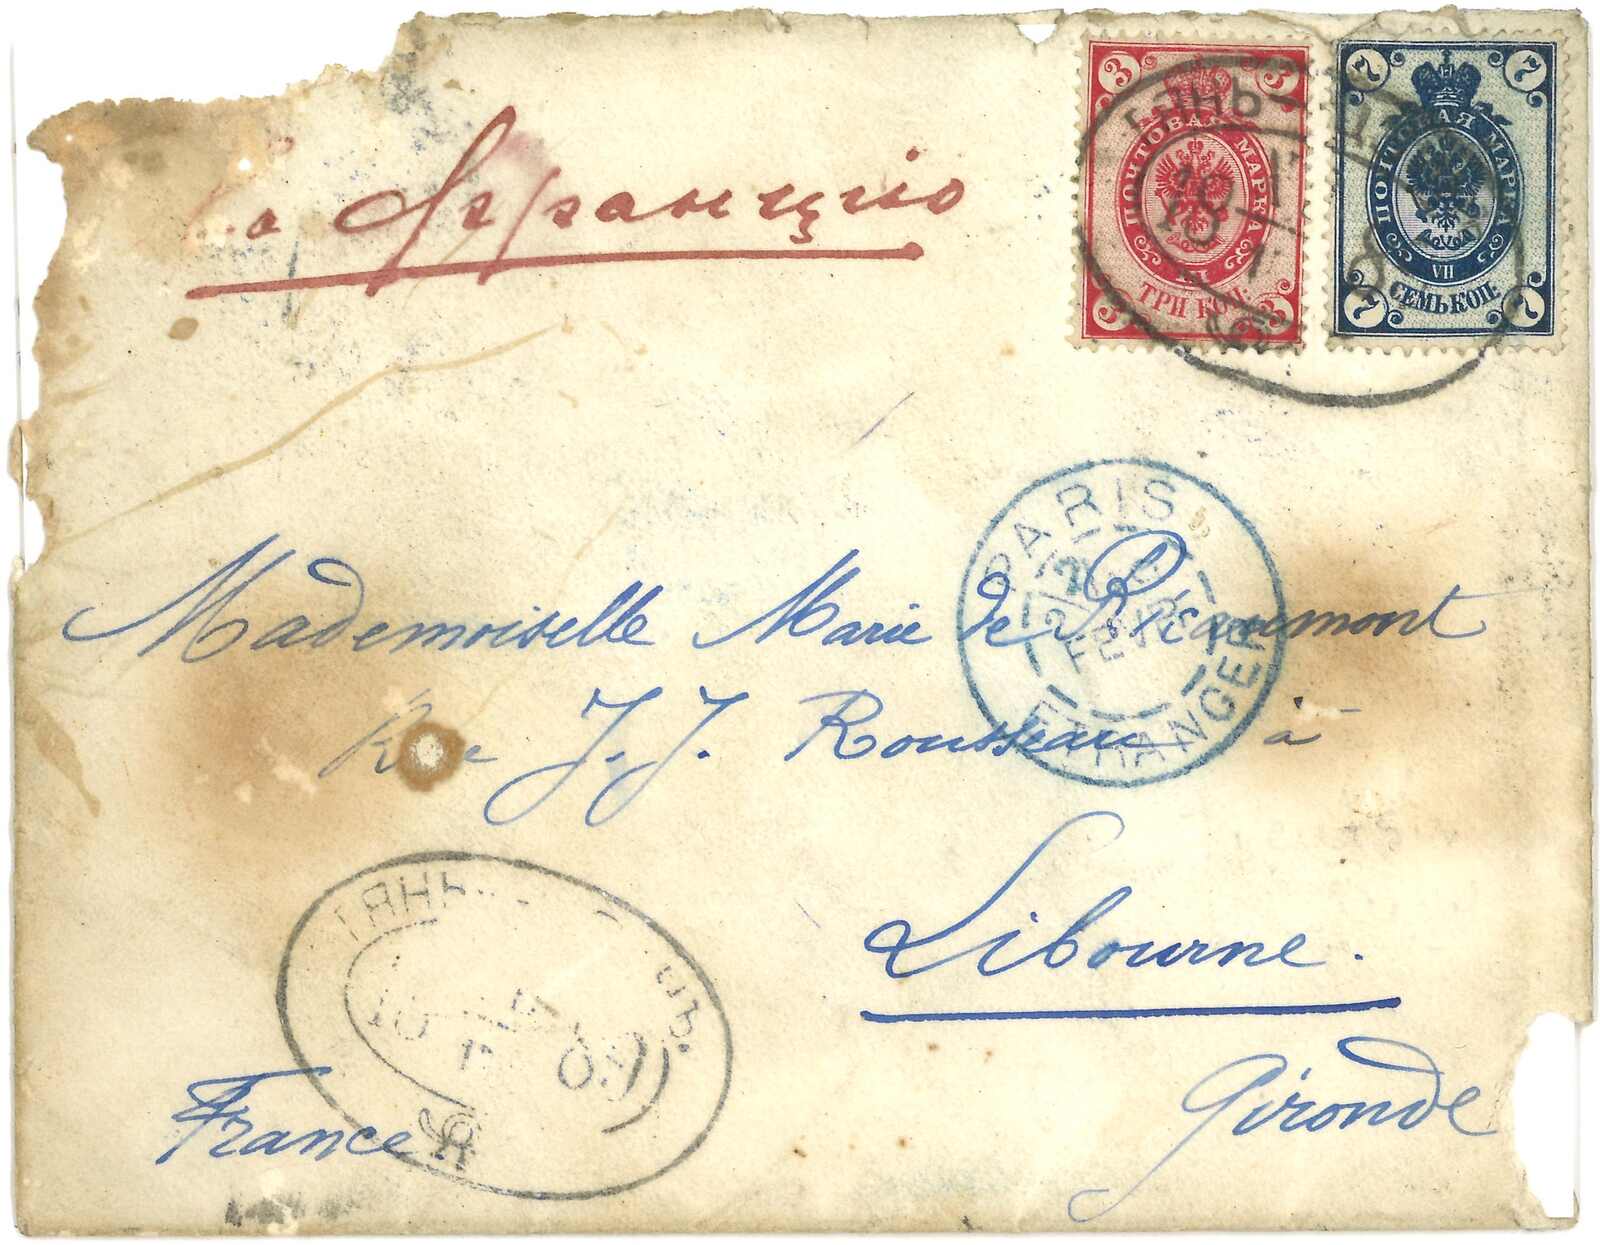 Францию
3 3
ПОЧТОВАЯ МАРКА
ТРИ КОП.
3 3
7 7
ПОЧТОВАЯ МАРКА
VII
СЕМЬ КОП.
7 7
PARIS
FEVR
ETRANGER
Mademoiselle Marie de Ricaumont
Rue J. J. Rousseau à
Libourne.
Gironde
France